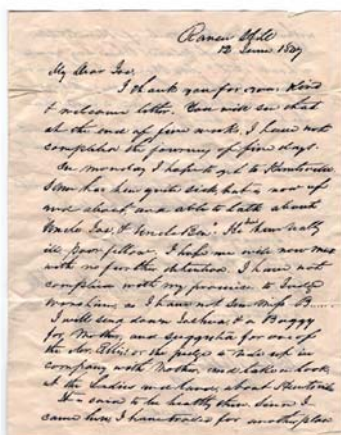 12 June 18
My Dear Jas,
I thank you for your kind
& welcome letter. You will see that
at the end of five weeks, I have not
completed the journey of five days.
On Monday I hope to get to Huntsville
has been quite sick, but is now up
and about and able to talk about
Uncle Jas. & Uncle Ben. He has been really
ill Poor fellow. I hope we will now meet
with no further detention. I have not
complied with my promise to
as I have not seen Miss B
I will send down Joshua & a Buggy
for Mother and suggest for one of
the or the Judge to ride up in
company with Mother, and take a look
at the Ladies and land, about Huntsville
It is said to be healthy there. Since I
came here, I have traded for another place